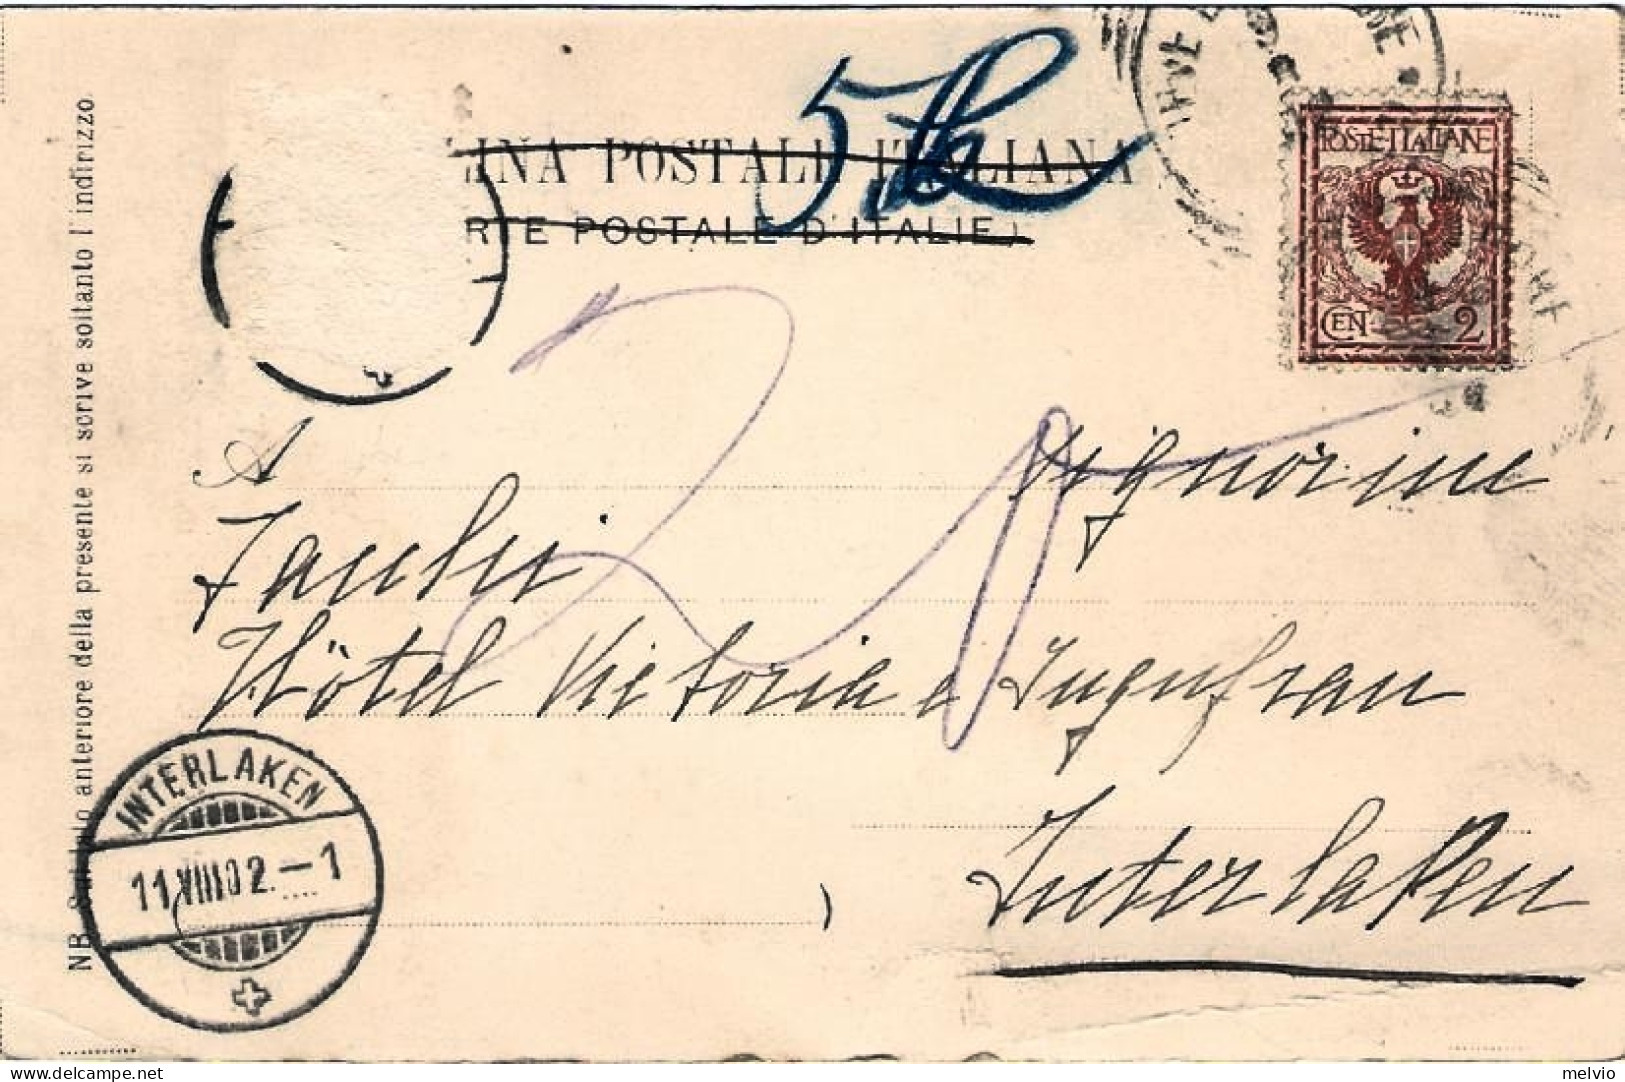 5
INA POSTALE ITALIANA
RTE POSTALE D'ITALIE)
POSTE ITALIANE
CEN. 2
20
A Signorine
Hôtel Victoria e Jugnfrau
Interlaken
INTERLAKEN
11 VIII 02.-1
NB. Sul lato anteriore della presente si scrive soltanto l'indirizzo
melvio